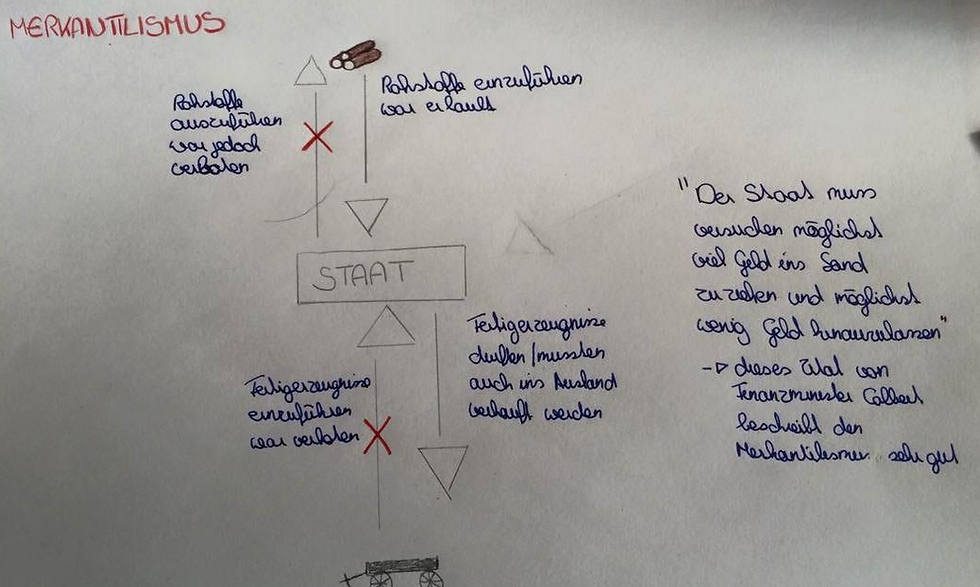 MERKANTILISMUS
Rohstoffe
auszuführen
war jedoch
verboten
Rohstoffe einzuführen
war erlaubt
STAAT
Fertigerzeugnisse
einzuführen
war verboten
Fertigerzeugnisse
durften/mussten
auch ins Ausland
verkauft werden
"Der Staat muss
versuchen möglichst
viel Geld ins Land
zu ziehen und möglichst
wenig Geld hinauszulassen"
→ dieses Zitat von
Finanzminister Colbert
beschreibt den
Merkantilismus sehr gut